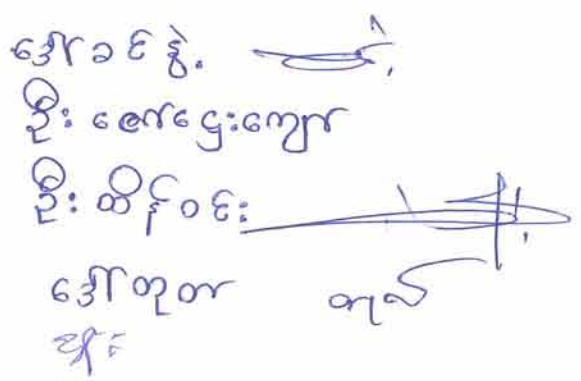 ဒေါ်ခင်နွဲ့
ဦးဇော်ဌေးကျော်
ဦးထိန်ဝင်း
ဒေါ်တုတာ